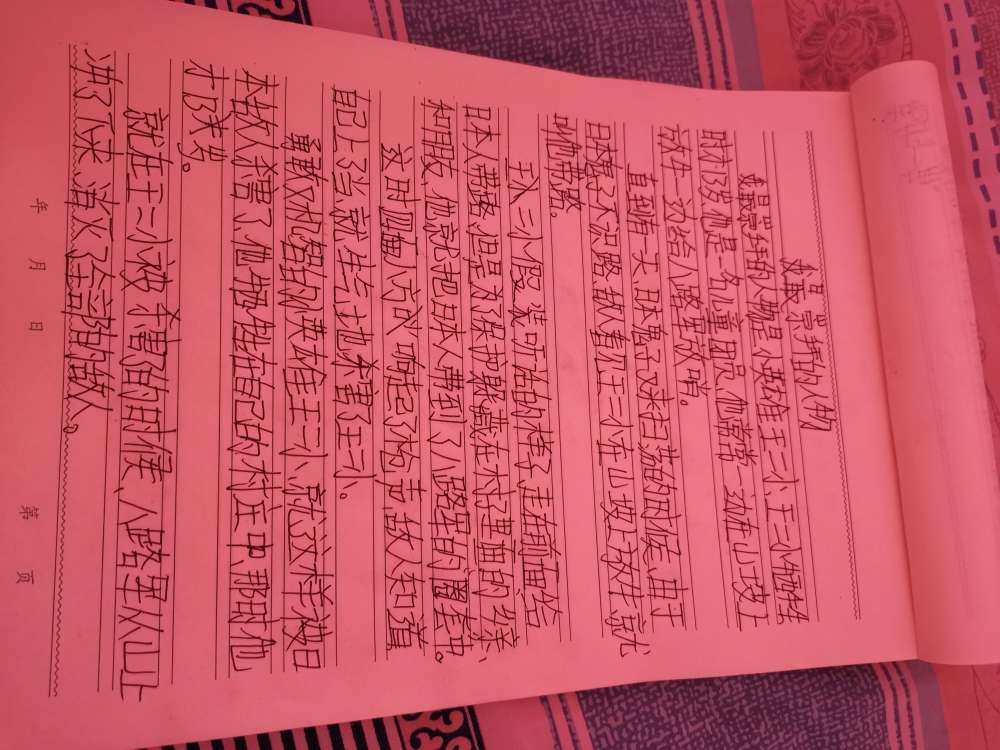 我最崇拜的人物
我最崇拜的人物是小英雄王二小,王二小牺牲
时才13岁他是一名儿童团员,他常常一边在山坡上
放牛一边给八路军放哨。
直到有一天,日本鬼子又来扫荡的时候,由于
日本鬼子不识路,就看住王二小在山坡放牛就
叫他带路。
王二小假装听话的样子走在前面给
日本人带路,但是为了保护躲藏在村子里面的乡亲、
和朋友,他就把日本人带到了八路军的埋伏中。
这时四面八方响起了枪声,敌人知道
自己上了当就生气地杀害了王二小。
勇敢机智的小英雄王二小,就这样被日
本敌人杀害了他牺牲在自己的村庄中,那时他
才13岁。
就在王二小被杀害的时候,八路军从山上
冲了下来,消灭了全部的敌人。
年 月 日
第 页